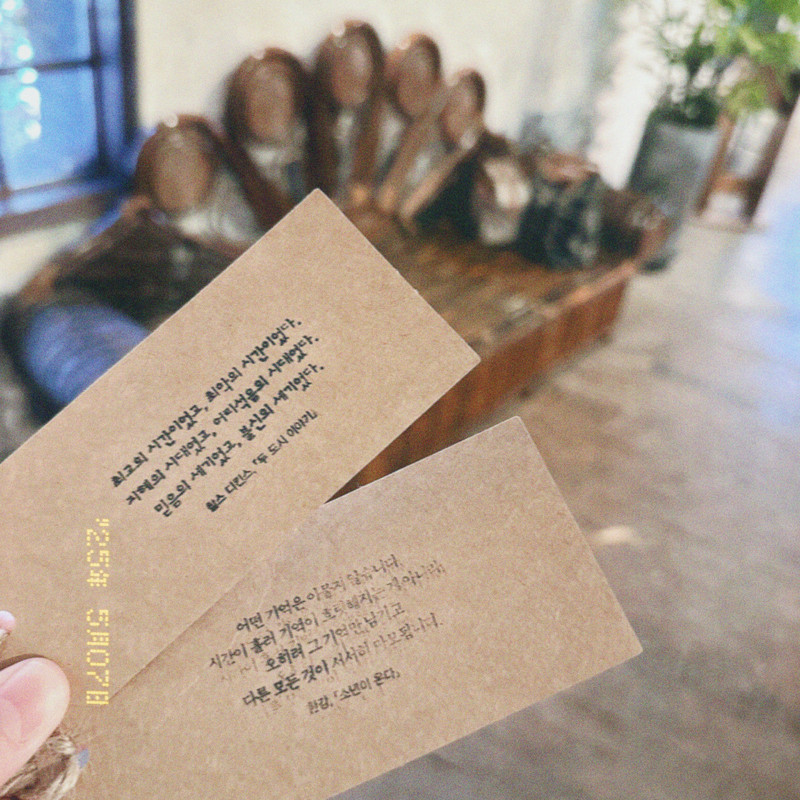 최고의 시간이었고, 최악의 시간이었다.
지혜의 시대였고, 어리석음의 시대였다.
믿음의 세기였고, 불신의 세기였다.
찰스 디킨스, 「두 도시 이야기」
어떤 기억은 아물지 않습니다.
시간이 흘러 기억이 흐릿해지는 게 아니라,
오히려 그 기억만 남기고
다른 모든 것이 서서히 마모됩니다.
한강, 「소년이 온다」
'25年 5月07日